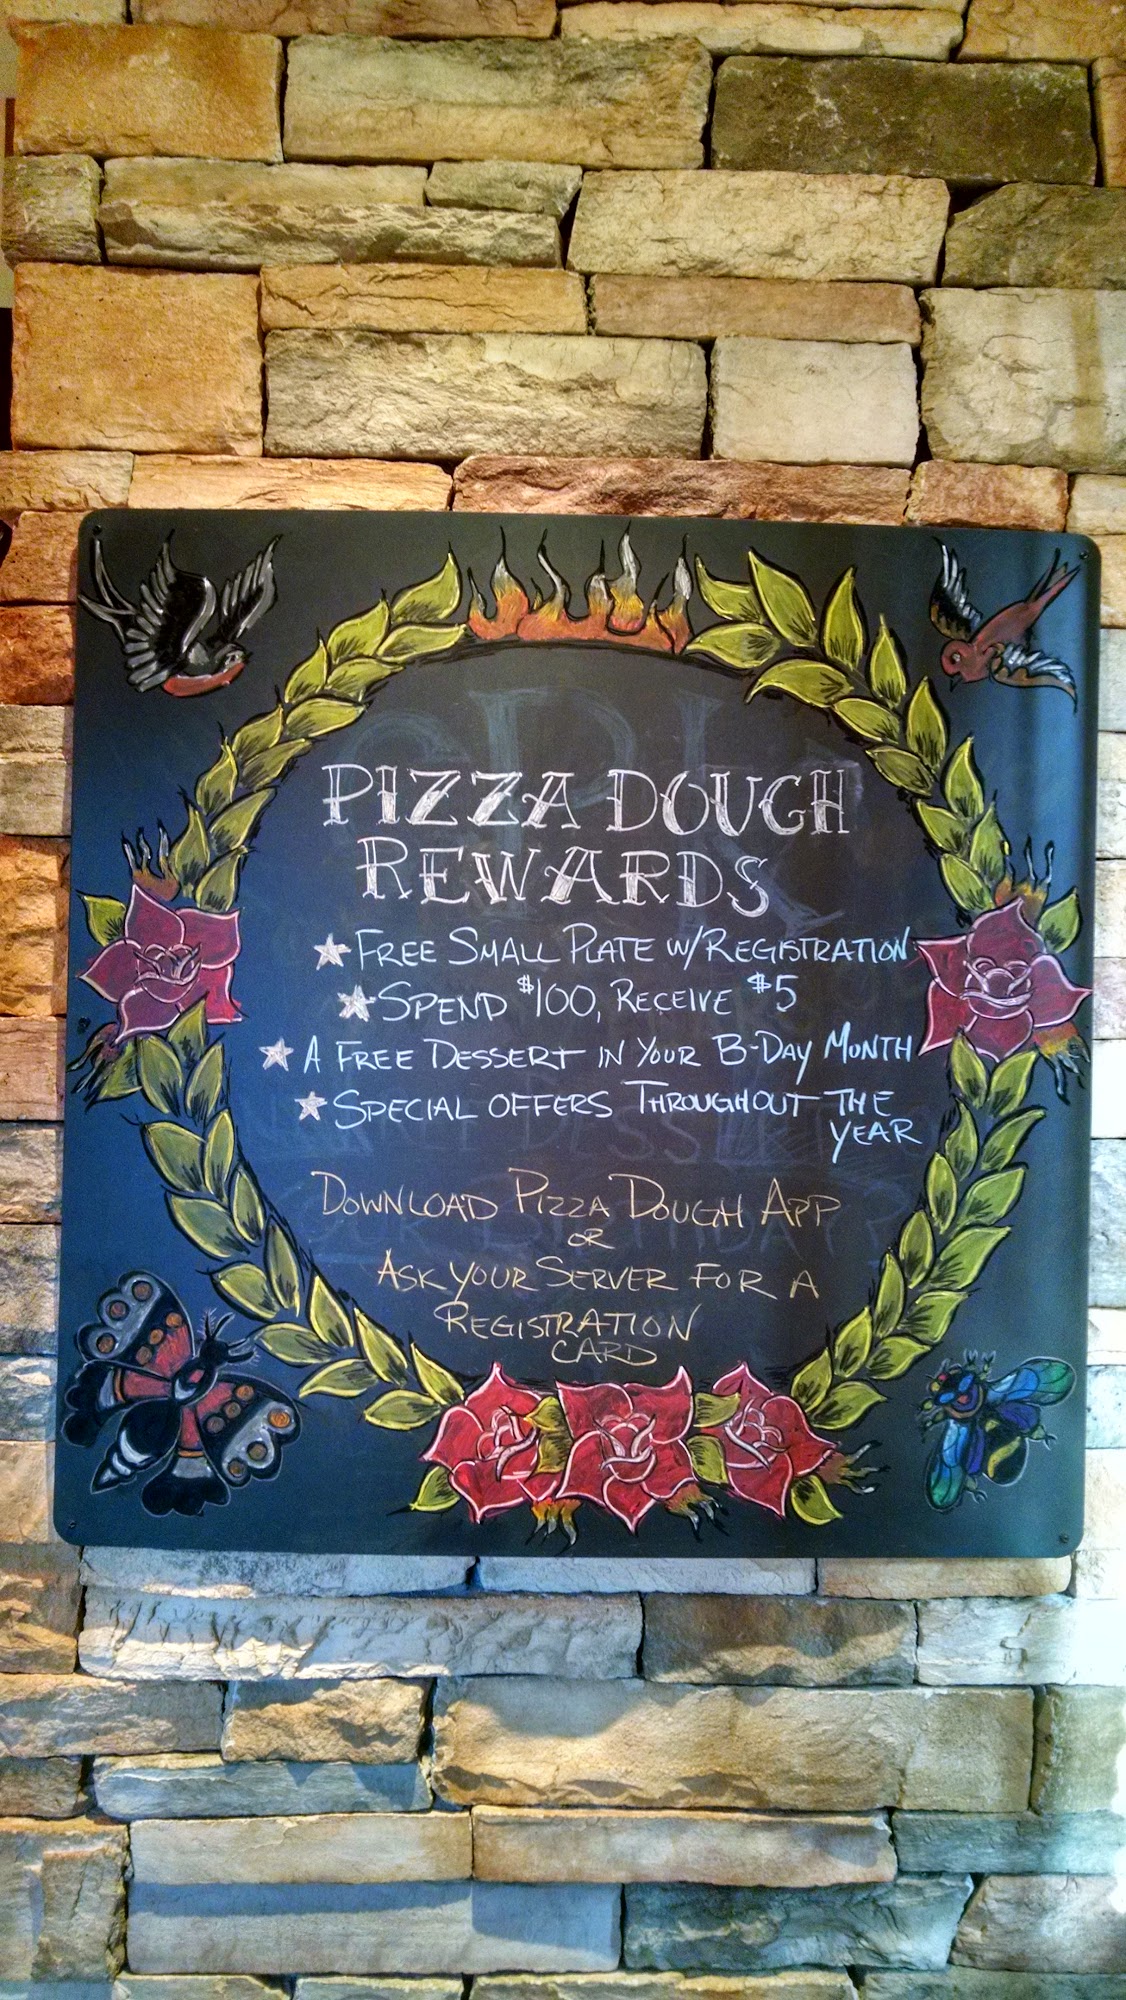 PIZZA DOUGH
REWARDS
FREE SMALL PLATE W/REGISTRATION
SPEND $100, RECEIVE $5
A FREE DESSERT IN YOUR B-DAY MONTH
SPECIAL OFFERS THROUGHOUT THE
YEAR
DOWNLOAD PIZZA DOUGH APP
OR
ASK YOUR SERVER FOR A
REGISTRATION
CARD